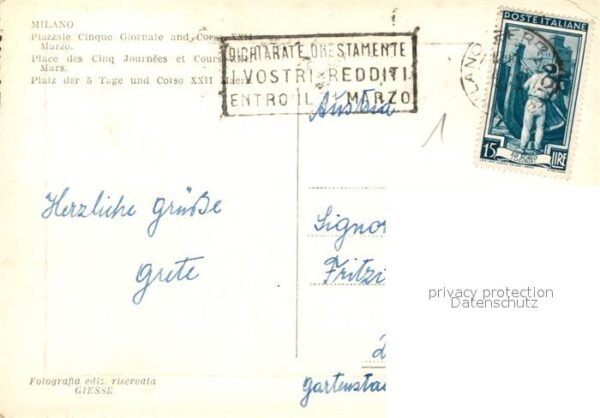 MILANO
Piazzale Cinque Giornate and Corso XXII
Marzo.
Place des Cinq Journées et Cours XXII
Mars.
Platz der 5 Tage und Corso XXII
DICHIARATE ONESTAMENTE
I VOSTRI REDDITI
ENTRO IL 31 MARZO
MILANO
POSTE ITALIANE
15 LIRE
LO SCALO
Austria
1
Herzliche Grüße
Grete
Signor
Fritzi
privacy protection
Datenschutz
Gartensta
Fotografia ediz. riservata
GIESSE